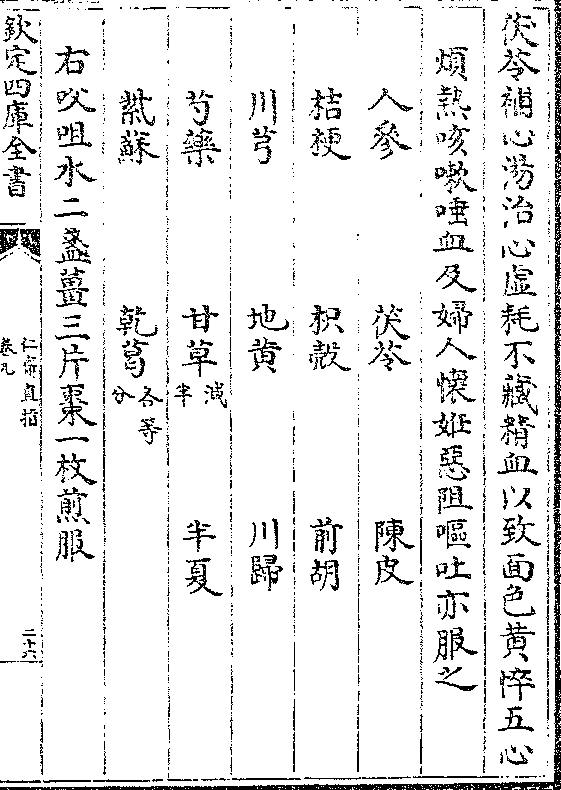 茯苓補心湯治心虛耗不藏精血以致面色黄悴五心
煩熱咳嗽唾血及婦人懷姙惡阻嘔吐亦服之
人參 茯苓 陳皮
桔梗 枳殼 前胡
川芎 地黄 川歸
芍藥 甘草減半 半夏
紫蘇 乾葛各等分
右㕮咀水二盞薑三片棗一枚煎服
欽定四庫全書
仁齋直指
卷九
二十六